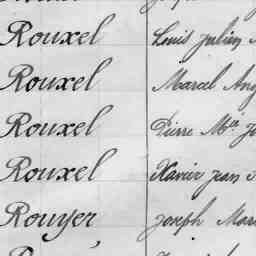 Rouxel Louis Julien
Rouxel Marcel Ang
Rouxel Pierre Mie J
Rouxel Xavier Jean
Rouyer Joseph Mar